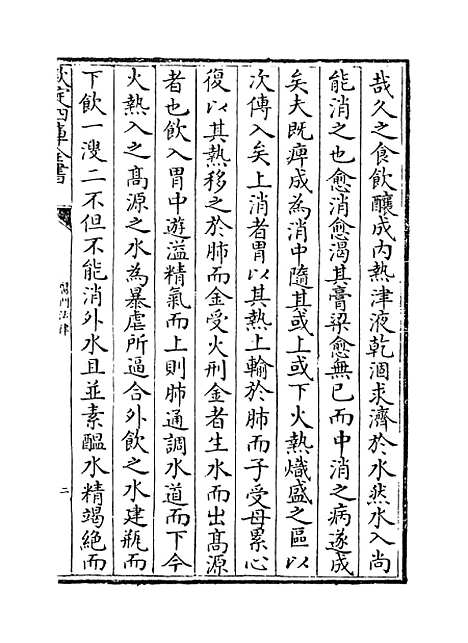 哉久之食飲釀成内熱津液乾涸求濟於水然水入尚
能消之也愈消愈渴其膏粱愈無已而中消之病遂成
矣夫既瘅成為消中隨其或上或下火熱熾盛之區以
次傳入矣上消者胃以其熱上輸於肺而子受母累心
復以其熱移之於肺而金受火刑金者生水而出髙源
者也飲入胃中遊溢精氣而上則肺通調水道而下今
火熱入之髙源之水為暴虐所逼合外飲之水建瓶而
下飲一溲二不但不能消外水且並素醖水精竭絶而
欽定四庫全書
醫門法律
二